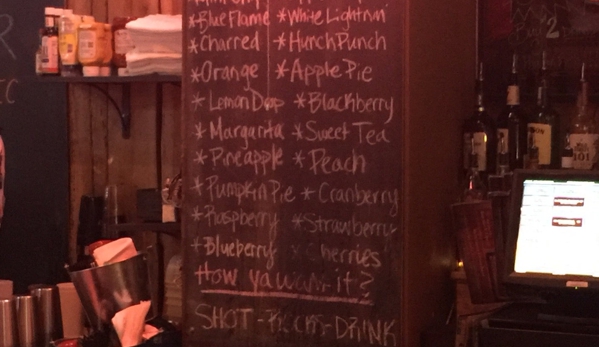 *Blue Flame *White Lightnin'
*Charred *Hunch Punch
*Orange *Apple Pie
*Lemon Drop *Blackberry
*Margarita *Sweet Tea
*Pineapple *Peach
*Pumpkin Pie *Cranberry
*Raspberry *Strawberry
*Blueberry *Cherries
How ya want it?
SHOT-ROCKS-DRINK
101
2